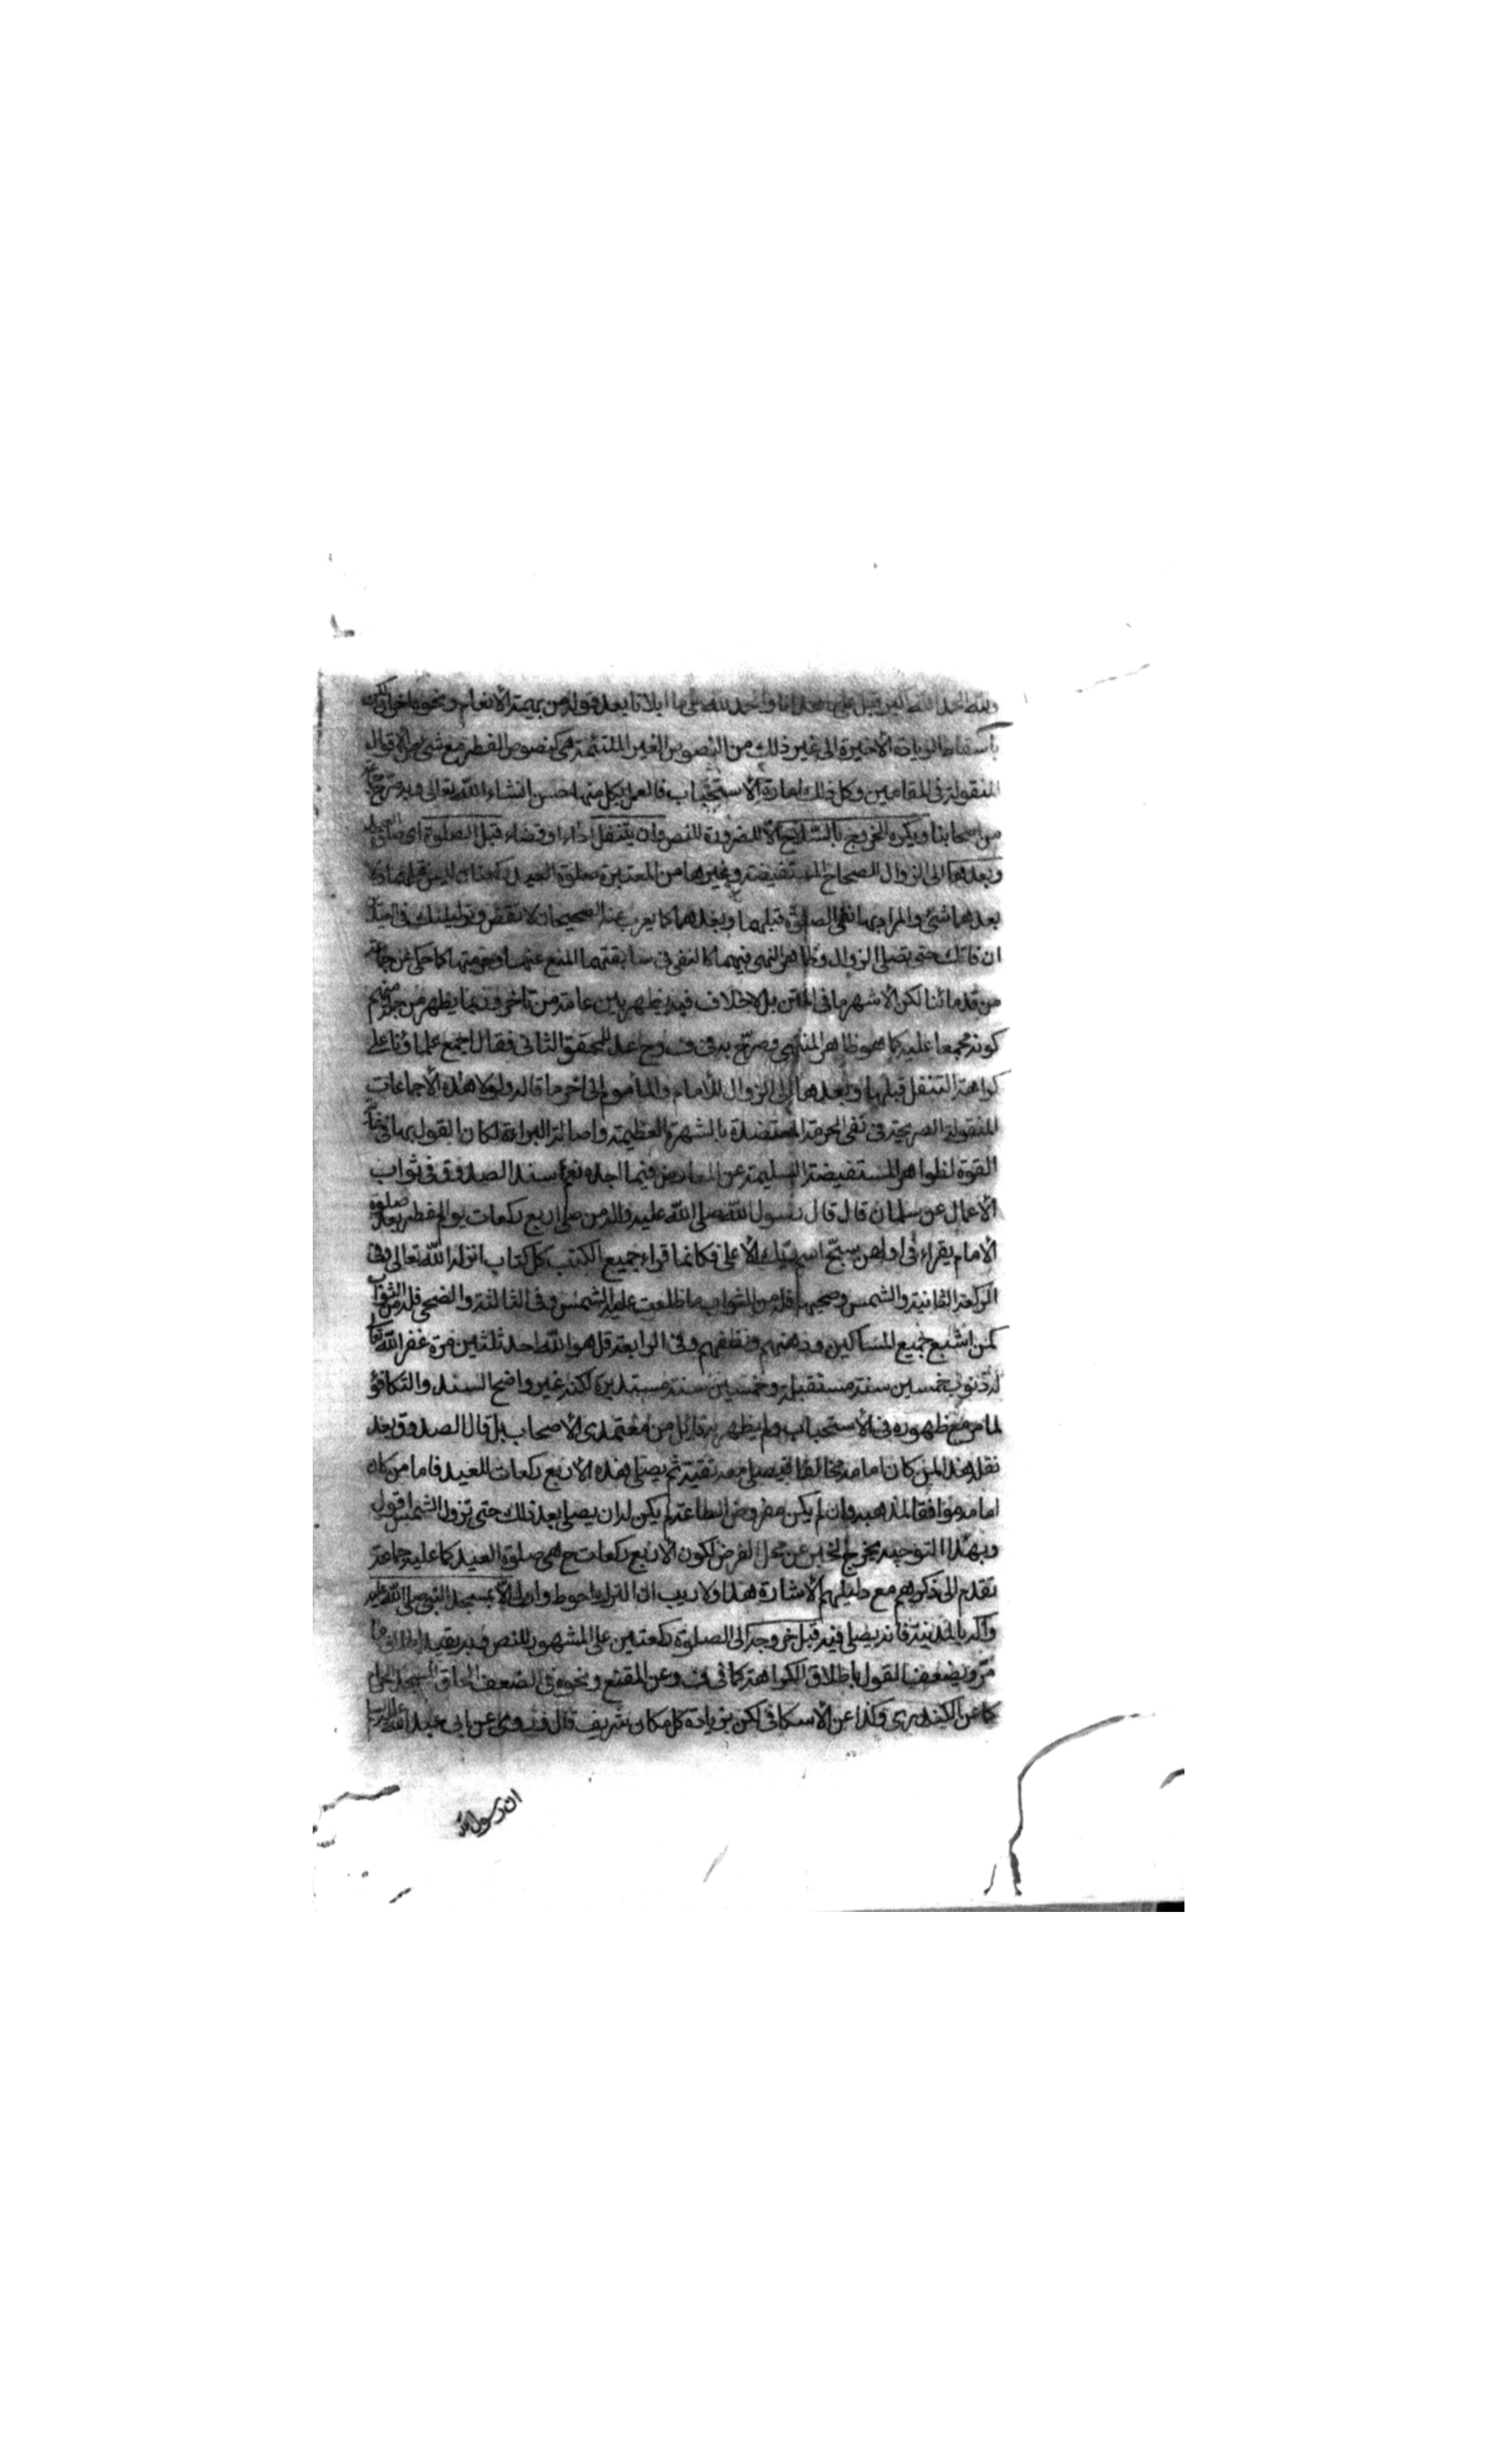 ولله الحمد الله اكبر قيل على ما هدانا والحمد لله على ما ابلانا بعد قوله من بهيمة الأنعام ونحوه اخر لكن
باسقاط الزيادة الأخيرة الى غير ذلك من النصوص الغير الملتئمة هي كنصوص الفطر مع شئ من الاقوال
المنقولة في المقامين وكل ذلك امارة الاستحباب فالعمل بكل منها حسن انشاء الله تعالى وبه صرح
من اصحابنا ويكره الخروج بالسلاح الا للضرورة للنص وان يتنفل اداء او قضاء قبل الصلوة اى صلوة العيد
وبعدها الى الزوال للصحاح المستفيضة وغيرها من المعتبرة صلوة العيد ركعتان ليس قبلهما ولا
بعدهما شئ والمراد بها نفى الصلوة قبلهما وبعدهما كما يعرب عنه الصحيحان لا تقض وتر ليلتك في العيدين
ان فاتك حتى تصلى الزوال وظاهر النهى فيهما كالنفى في سابقتهما المنع عنهما وحرمتها كما حكى عن جماعة
من قدمائنا لكن الأشهر ما في المتن بل لا خلاف فيه يظهر بين عامة من تاخر وربما يظهر من جمع منهم
كونه مجمعا عليه كما هو ظاهر المنتهى وصرح به في ف وح عد للمحقق الثانى فقال اجمع علماؤنا على
كراهة التنفل قبلها وبعدها الى الزوال للأمام والمأموم الى اخر ما قاله ولولا هذه الأجماعات
المنقولة الصريحة في نفى الحرمة المعتضدة بالشهرة العظيمة واصالة البراءة لكان القول بها في غاية
القوة لظواهر المستفيضة السليمة عن المعارض فيما اجده نعم اسند الصدوق في ثواب
الأعمال عن سلمان قال قال رسول الله صلى الله عليه واله من صلى اربع ركعات يوم الفطر بعد صلوة
الأمام يقراء في اولهن سبح اسم ربك الأعلى فكانما قراء جميع الكتب كل كتاب انزله الله تعالى وفى
الركعة الثانية والشمس وضحيها فله من الثواب ما طلعت عليه الشمس وفى الثالثة والضحى فله من الثواب
كمن اشبع جميع المساكين ودهنهم ونظفهم وفى الرابعة قل هو الله احد ثلثين مرة غفر الله تعالى
له ذنوب خمسين سنة مستقبلة وخمسين سنة مستدبرة لكنه غير واضح السند والتكافؤ
لما مر مع ظهوره في الأستحباب ولم يظهر به قائل من معتمدى الأصحاب بل قال الصدوق بعد
نقله هذا لمن كان امامه مخالفا فيصلى معه تقية ثم يصلى هذه الأربع ركعات للعيد فاما من كان
امامه موافقا لمذهبه وان لم يكن مفروض الطاعة لم يكن له ان يصلى بعد ذلك حتى تزول الشمس اقول
وبهذا التوجيه يخرج الخبر عن محل الفرض لكون الأربع ركعات ح هى صلوة العيد كما عليه جماعة
تقدم الى ذكرهم مع دليلهم الأشارة هذا ولا ريب ان الترك احوط واولى الا بمسجد النبى صلى الله عليه
واله بالمدينة فانه يصلى فيه قبل خروجه الى الصلوة ركعتين على المشهور للنص وبه يقيد اطلاق ما
مر ويضعف القول باطلاق الكراهة كما في ف وعن المقنع ونحوه في الضعف الحاق المسجد الحرام
كما عن الكيندرى وكذا عن الأسكافى لكن بزيادة كل مكان شريف قال وروى عن ابى عبد الله عليه السلام
ان رسول الله